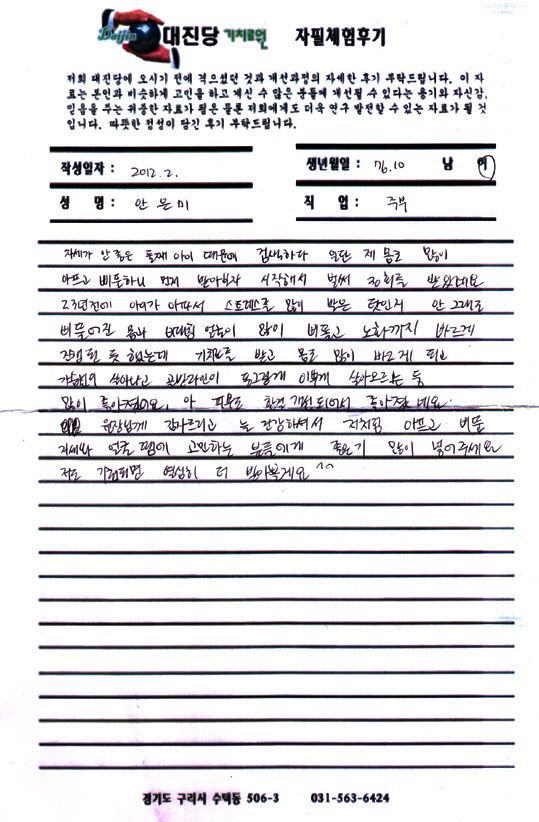 Daijin 대진당 기치료원 자필체험후기
저희 대진당에 오시기 전에 겪으셨던 것과 개선과정의 자세한 후기 부탁드립니다. 이 자
료는 본인과 비슷하게 고민을 하고 계신 수 많은 분들께 개선될 수 있다는 용기와 자신감,
믿음을 주는 귀중한 자료가 됨은 물론 저희에게도 더욱 연구 발전할 수 있는 자료가 될 것
입니다. 따뜻한 정성이 담긴 후기 부탁드립니다.
작성일자 : 2012. 2. 생년월일 : 76.10 남 여
성 명 : 안은미 직 업 : 주부
자세가 안 좋은 둘째 아이 때문에 검색하다 일단 제 몸도 많이
아프고 삐뚤하니 먼저 받아보자 시작해서 벌써 30회를 받았네요
2,3년전에 아이가 아파서 스트레스를 많이 받은 탓인지 안 그래도
비뚤어진 몸과 얼굴이 많이 비뚤고 노화까지 빠르게
진행된 듯 했는데 기치료를 받고 몸도 많이 바르게 되고
살아나고 이쁘게 살아오르는 등
많이 좋아졌어요. 아 피부도 한결 좋아졌네요.
원장님께 감사드리고 늘 건강하셔서 저처럼 아프고 비뚤
자세와 얼굴 땜에 고민하는 분들에게 좋은기 많이 넣어주세요
저도 열심히 더 받아볼게요 ^^
경기도 구리시 수택동 506-3 031-563-6424